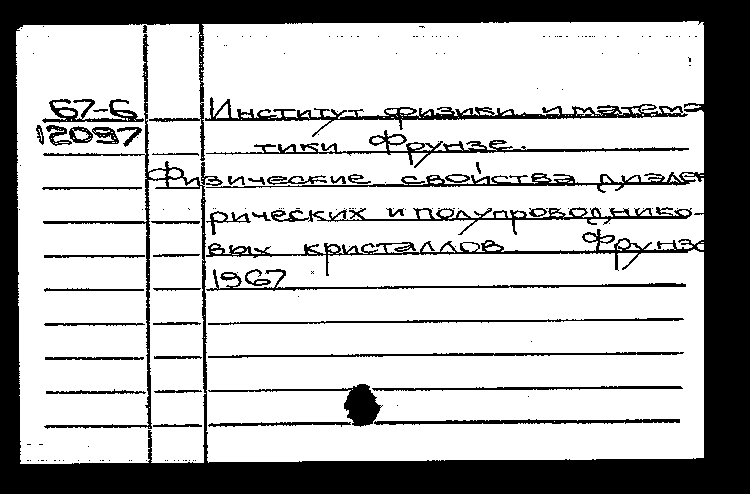 67-6 Институт физики и матема
12097 тики Фрунзе.
Физические свойства диэлек
рических и полупроводнико-
вых кристаллов. Фрунзе
1967